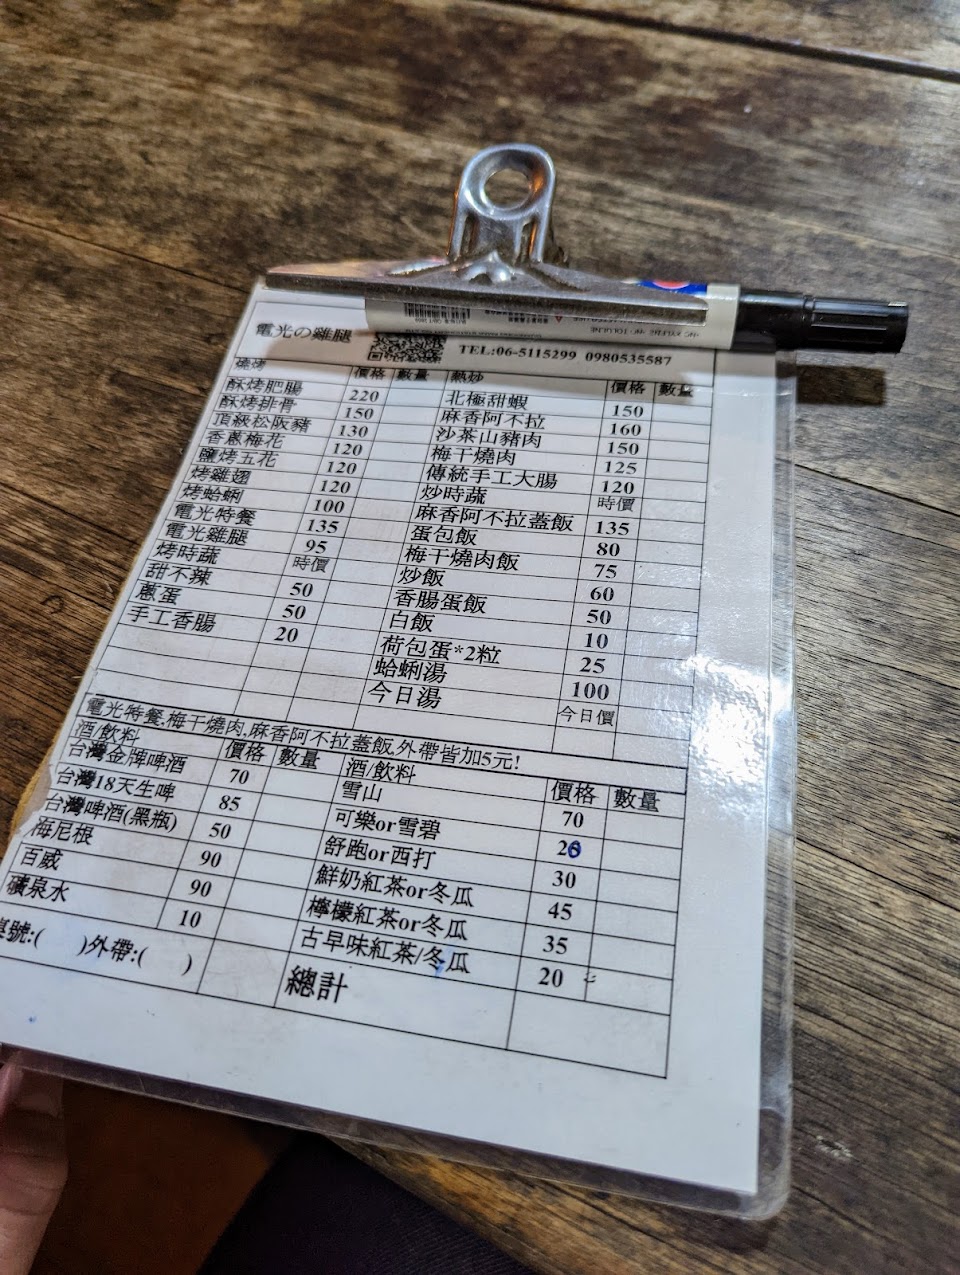 電光の雞腿 TEL:06-5115299 0980535587
燒烤 價格 數量 熱炒 價格 數量
酥烤肥腸 220 北極甜蝦 150
酥烤排骨 150 麻香阿不拉 160
頂級松阪豬 130 沙茶山豬肉 150
香蔥梅花 120 梅干燒肉 125
鹽烤五花 120 傳統手工大腸 120
烤雞翅 120 炒時蔬 時價
烤蛤蜊 100 麻香阿不拉蓋飯 135
電光特餐 135 蛋包飯 80
電光雞腿 95 梅干燒肉飯 75
烤時蔬 時價 炒飯 60
甜不辣 50 香腸蛋飯 50
蔥蛋 50 白飯 10
手工香腸 20 荷包蛋*2粒 25
蛤蜊湯 100
今日湯 今日價
電光特餐,梅干燒肉,麻香阿不拉蓋飯,外帶皆加5元!
酒/飲料 價格 數量 酒/飲料 價格 數量
台灣金牌啤酒 70 雪山 70
台灣18天生啤 85 可樂or雪碧 20
台灣啤酒(黑瓶) 50 舒跑or西打 30
海尼根 90 鮮奶紅茶or冬瓜 45
百威 90 檸檬紅茶or冬瓜 35
礦泉水 10 古早味紅茶/冬瓜 20
號:( )外帶:( ) 總計